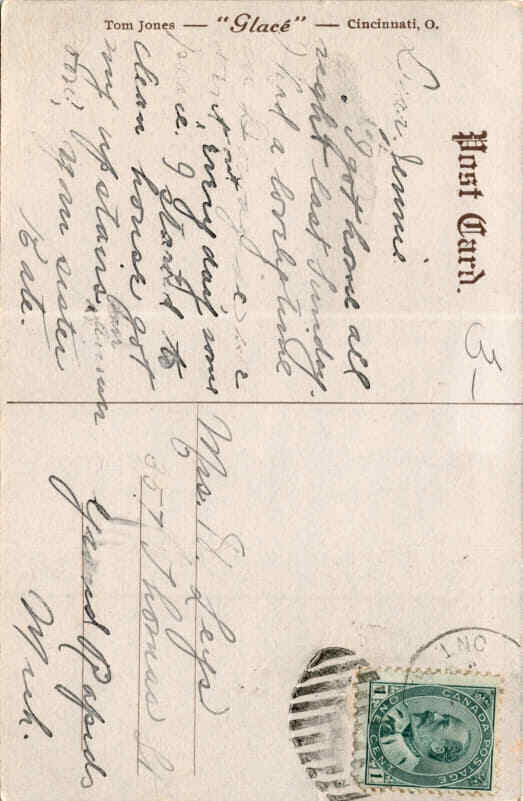 Tom Jones — "Glacé" — Cincinnati, O.
Post Card.
3-
Dear Jennie.
I got home all
right last Sunday.
I had a lovely time
every day
I started to
clean house got
my upstairs
your sister
Kate.
Mrs. H. Leys
357 Thomas St
Grand Rapids
Mich.
ONT
CANADA POSTAGE
ONE CENT
1 1